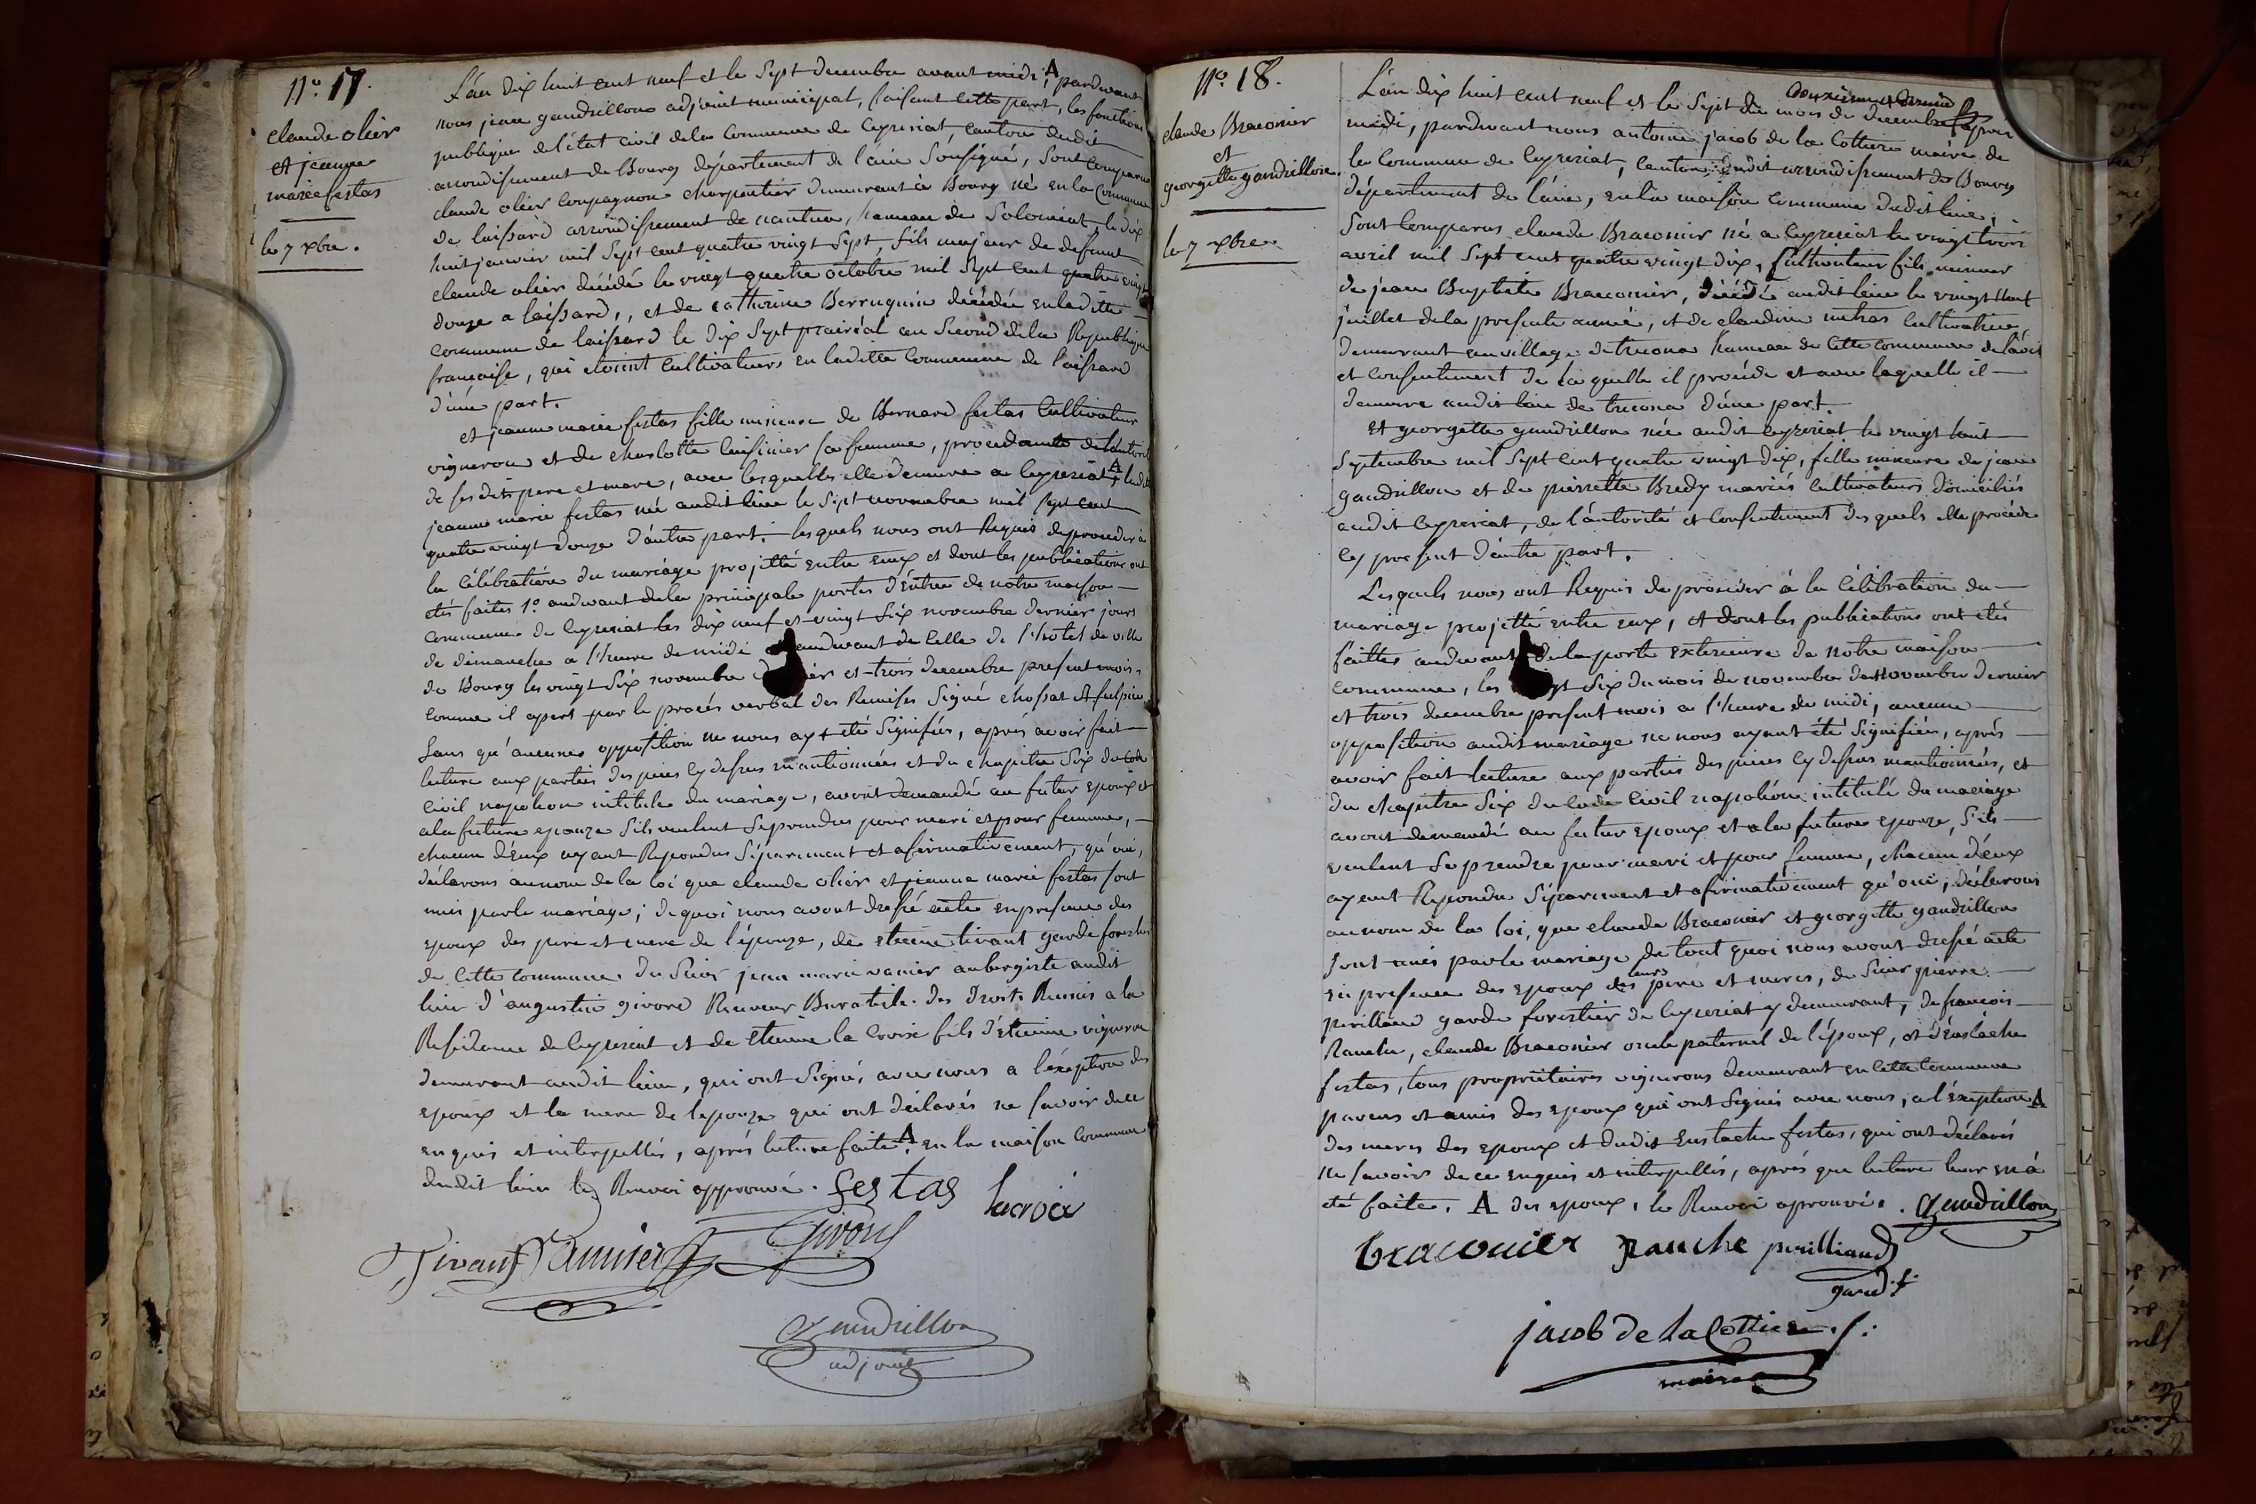 N.o 17.
claude olier
et jeanne
marie festas
le 7 xbre.
L'an dix huit cent neuf et le sept decembre avant midi, A pardevant
nous jean gaudrillon adjoint municipal, faisant cette part, les fonctions
publiques de l'état civil de la commune de Ceyzeriat, canton dudit
arrondissement de Bourg département de l'ain soussigné, sont comparus
claude olier compagnon charpentier demeurant à Bourg né en la Commune
de laissard arrondissement de nantua, hameau de Solomiat, le dix
huit janvier mil sept cent quatre vingt sept, fils majeur de defunt
claude olier décédé le vingt quatre octobre mil sept cent quatre vingt
douze a laissard, et de catherine Berruquin décédée en laditte
commune de laissard le dix sept prairéal an second de la Republique
française, qui etoient cultivateurs en laditte Commune de laissard
d'une part.
et jeanne marie festas fille mineure de Bernard festas cultivateur
vigneron et de charlotte cuisinier sa femme, procedante de l'autorité
de ses dits pere et mere, avec lesquelles elle demeure a Ceyzeriat, A ladite
jeanne marie festas née audit lieu le sept novembre mil sept cent
quatre vingt douze d'autre part. lesquels nous ont Requis de proceder à
la célébration du mariage projetté entre eux et dont les publications ont
étés faites 1.o audevant de la principale portes d'entrée de notre maison
commune de Ceyzeriat les dix neuf et vingt six novembre dernier jours
de dimanche a l'heure de midi audevant de celle de l'hotel de ville
de Bourg les vingt six novembre et trois decembre present mois,
comme il apert par le procés verbal des Remises signé chossat
sans qu'aucunes oppotition ne nous ay été signifiés, après avoir fait
lecture aux parties des pieces cy dessus mantionnées et du chapitre six du code
civil napoleon intitule du mariage, avons demandé au futur epoux et
a la future epouze s'ils veulent se prendre pour mari et pour femme,
chacun d'eux ayant Repondus séparement et afirmativement, qu'oui,
déclarons au nom de la loi que claude olier et jeanne marie festas sont
unis par le mariage; de quoi nous avont dressé acte en presence des
epoux des pere et mere de l'épouze, de etienne tivant garde forestier
de cette commune du sieur jean marie vanier aubergiste audit
lieu d'augustin givord Receveur Buraliste des droits Reunis a la
Residence de Ceyzeriat et de etienne la Croix fils d'etienne vigneron
demeurant audit lieu, qui ont signé, avec nous a l'exception des
epoux et la mere de l'epouze qui ont déclarés ne savoir de ce
enquis et interpellés, après lecture faite. A en la maison commune
dudit lieu le Renvoi approuvé. festas lacroix
Tivant Vannier Givord
Gaudrillon
adjoint
N.o 18.
claude Braconier
et
georgette gaudrillon.
le 7 xbre.
L'an dix huit cent neuf et le sept du mois de decembre après
midi, pardevant nous antoine jacob de la Cottiere maire de
la Commune de Ceyzeriat, canton dudit arrondissement de Bourg
département de l'ain, en la maison commune dudit lieu,
sont comparus claude Braconier né a Ceyzeriat le vingt trois
avril mil sept cent quatre vingt dix, cultivateur fils mineur
de jean Baptiste Braconier, décédé audit lieu le vingt huit
juillet de la presente année, et de claudine cultivatrice,
demeurant au village de treconas hameau de cette commune de l'avis
et consentement de laquelle il procéde et avec laquelle il
demeure audit lieu de treconas d'une part.
et georgette gaudrillon née audit Ceyzeriat le vingt huit
septembre mil sept cent quatre vingt dix, fille mineure de jean
gaudrillon et de pierrette Bredy mariés cultivateurs domiciliés
audit Ceyzeriat, de l'autorité et consentement desquels elle procéde
cy present d'autre part.
Lesquels nous ont Requis de procéder à la célébration du
mariage projetté entre eux, et dont les publications ont etés
faittes audevant de la porte exterieure de notre maison
commune, les vingt six du mois de novembre de novembre dernier
et trois decembre present mois a l'heure de midi, aucune
opposition audit mariage ne nous ayant été signifiée, après
avoir fait lecture aux parties des pieces cy dessus mantionnées, et
du chapitre six du code civil napoléon intitulé du mariage
avont demandé au futur epoux et a la future epouze, s'ils
veulent se prendre pour mari et pour femme, chacun d'eux
ayant Repondu séparement et afirmativement qu'oui; déclarons
au nom de la loi, que claude Braconier et georgette gaudrillon
sont unis par le mariage de tout quoi nous avont dressé acte
en presence des epoux des leurs pere et meres, de sieur pierre
perilliand garde forestier de Ceyzeriat y demeurant, de francois
Ranche, claude Braconier oncle paternel de l'époux, et d'eustache
festas, tous propriétaires vignerons demeurant en cette commune
parens et amis des epoux qui ont signés avec nous, a l'éxeption A
des meres des epoux et dudit Eustache festas, qui ont déclarés
ne savoir de ce enquis et interpellés, après que lecture leur en à
été faite. A des epoux, le Renvoi aprouvé. Gaudrillon
braconier ranche perilliand
gard. f.
jacob de la Cottiere
maire